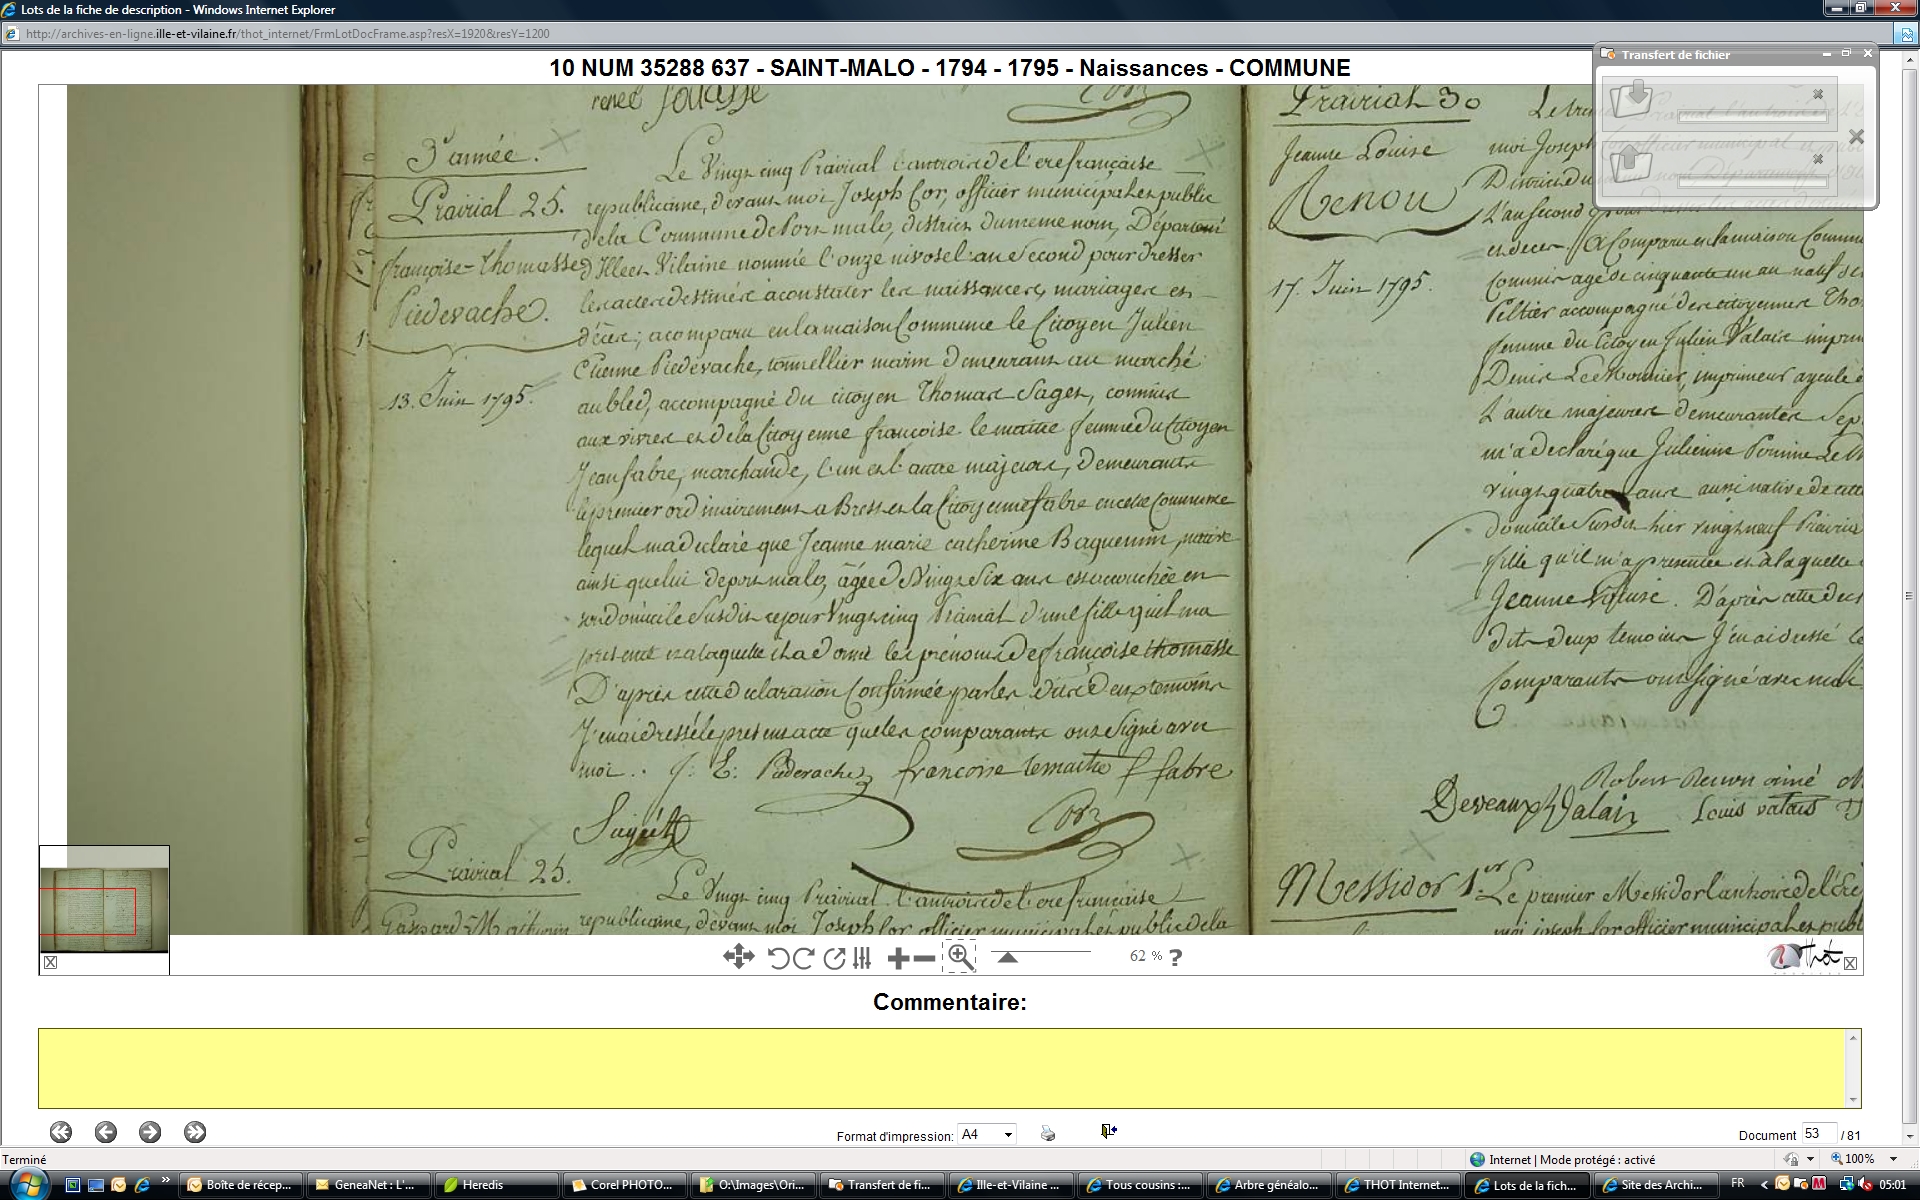 Lots de la fiche de description - Windows Internet Explorer
http://archives-en-ligne.ille-et-vilaine.fr/thot_internet/FrmLotDocFrame.asp?resX=1920&resY=1200
Transfert de fichier
10 NUM 35288 637 - SAINT-MALO - 1794 - 1795 - Naissances - COMMUNE
3e année.
Prairial 25.
françoise-Thomasse
Piedevache.
13. Juin 1795.
Le Vingt cinq Prairial l'an troisde l'ere française
republicaine, devant moi Joseph Cor, officier municipal et public
dela Commune de Port malo, district dumeme nom, Départemt
d'Illeet Vilaine nommé l'onze nivose l'an Second pour dresser
les actes destinés aconstater les naissances, mariages et
décès; acomparu en la maison Commune le Citoyen Julien
Etienne Piedevache, tonnellier marin demeurant au marché
aubled, accompagné du citoyen Thomas Saget, commis
aux vivres et dela Citoyenne françoise lemaitre femme du Citoyen
Jean fabre, marchande, l'un et l'autre majeurs, demeurants
lepremier ordinairement a Brest et la Citoyenne fabre en cette Commune
lequel ma declaré que Jeanne marie catherine Baguenin, native
ainsi quelui deport malo, âgée d Vingt Six ans est accouchée en
son domicile Susdit cejour Vingt cinq Prairial d'une fille quil ma
presenté et alaquelle il a donné les prénoms de françoise thomasse
D'après cette declaration Confirmée par les dits deux temoins
J'enai dressé le present acte que les comparants ont Signé avec
moi. . J: E: Piedevache francoise lemaitre f fabre
Saget
Cor
Prairial 25.
Gaspard-Mathurin
Le Vingt cinq Prairial l'an troisde l'ere française
republicaine, devant moi Joseph Cor officier municipal et public de la
Prairial 30
Jeanne Louise
Renou
17. Juin 1795.
moi Joseph
L'an second
et deces // A Comparu en la maison Commune
Commis agé de cinquante un an natif de
Peltier accompagné des citoyennes Tho
femme du Citoyen Julien Valais imprim
Denis Lemonnier, imprimeur
L'autre majeures demeurantes Sep
m'a declaré que Julienne Perrine Le
vingt quatre ans aussi native de cette
domicile Susdit hier vingt neuf Prairia
fille qu'il m'a presentée et à laquelle
Jeanne Louise. D'après cette decl
dits deux temoins J'en ai dressé le
Comparants ont signé avec moi
Robert Renou ainé
Deveaux Valais Louis valais
Messidor 1.er
Le premier Messidor l'an trois de l'Ere
moi joseph Cor officier municipal et publ
62 % ?
Thot
Commentaire:
Format d'impression: A4
Document 53 / 81
Terminé
Internet | Mode protégé : activé
100%
Boîte de récep...
GeneaNet : L'...
Heredis
Corel PHOTO...
O:\Images\Ori...
Transfert de fi...
Ille-et-Vilaine ...
Tous cousins :...
Arbre généalo...
THOT Internet...
Lots de la fich...
Site des Archi...
FR
05:01